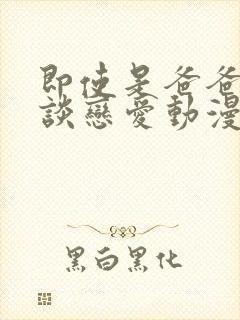 即使是爸爸
談戀愛動漫
黑白黑化